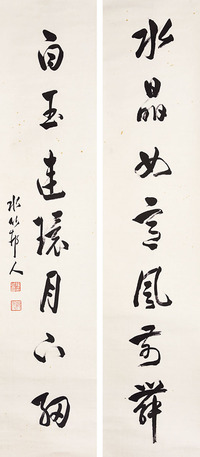 水晶如意風前舞
白玉連環月下
水竹邨人